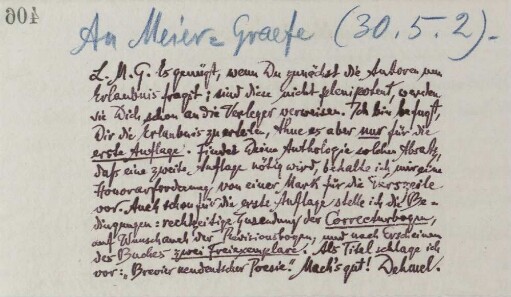 406
An Meier-Graefe (30.5.2).
L. M. G. Es genügt, wenn Du zunächst die Autoren um
Erlaubnis fragst; sind diese nicht plenipotent, werden
sie Dich schon an die Verleger verweisen. Ich bin befugt,
Dir die Erlaubnis zu erteilen, thue es aber nur für die
erste Auflage. Findet Deine Anthologie solchen Absatz,
daß eine zweite Auflage nötig wird, behalte ich mir eine
Honorarforderung von einer Mark für die Verszeile
vor. Auch schon für die erste Auflage stelle ich die Be-
dingungen: rechtzeitige Zusendung der Correcturbogen,
auf Wunsch auch der Revisionsbogen, und nach Erscheinen
des Buches zwei Freiexemplare. Als Titel schlage ich
vor: „Brevier neudeutscher Poesie." Mach's gut! Dehmel.